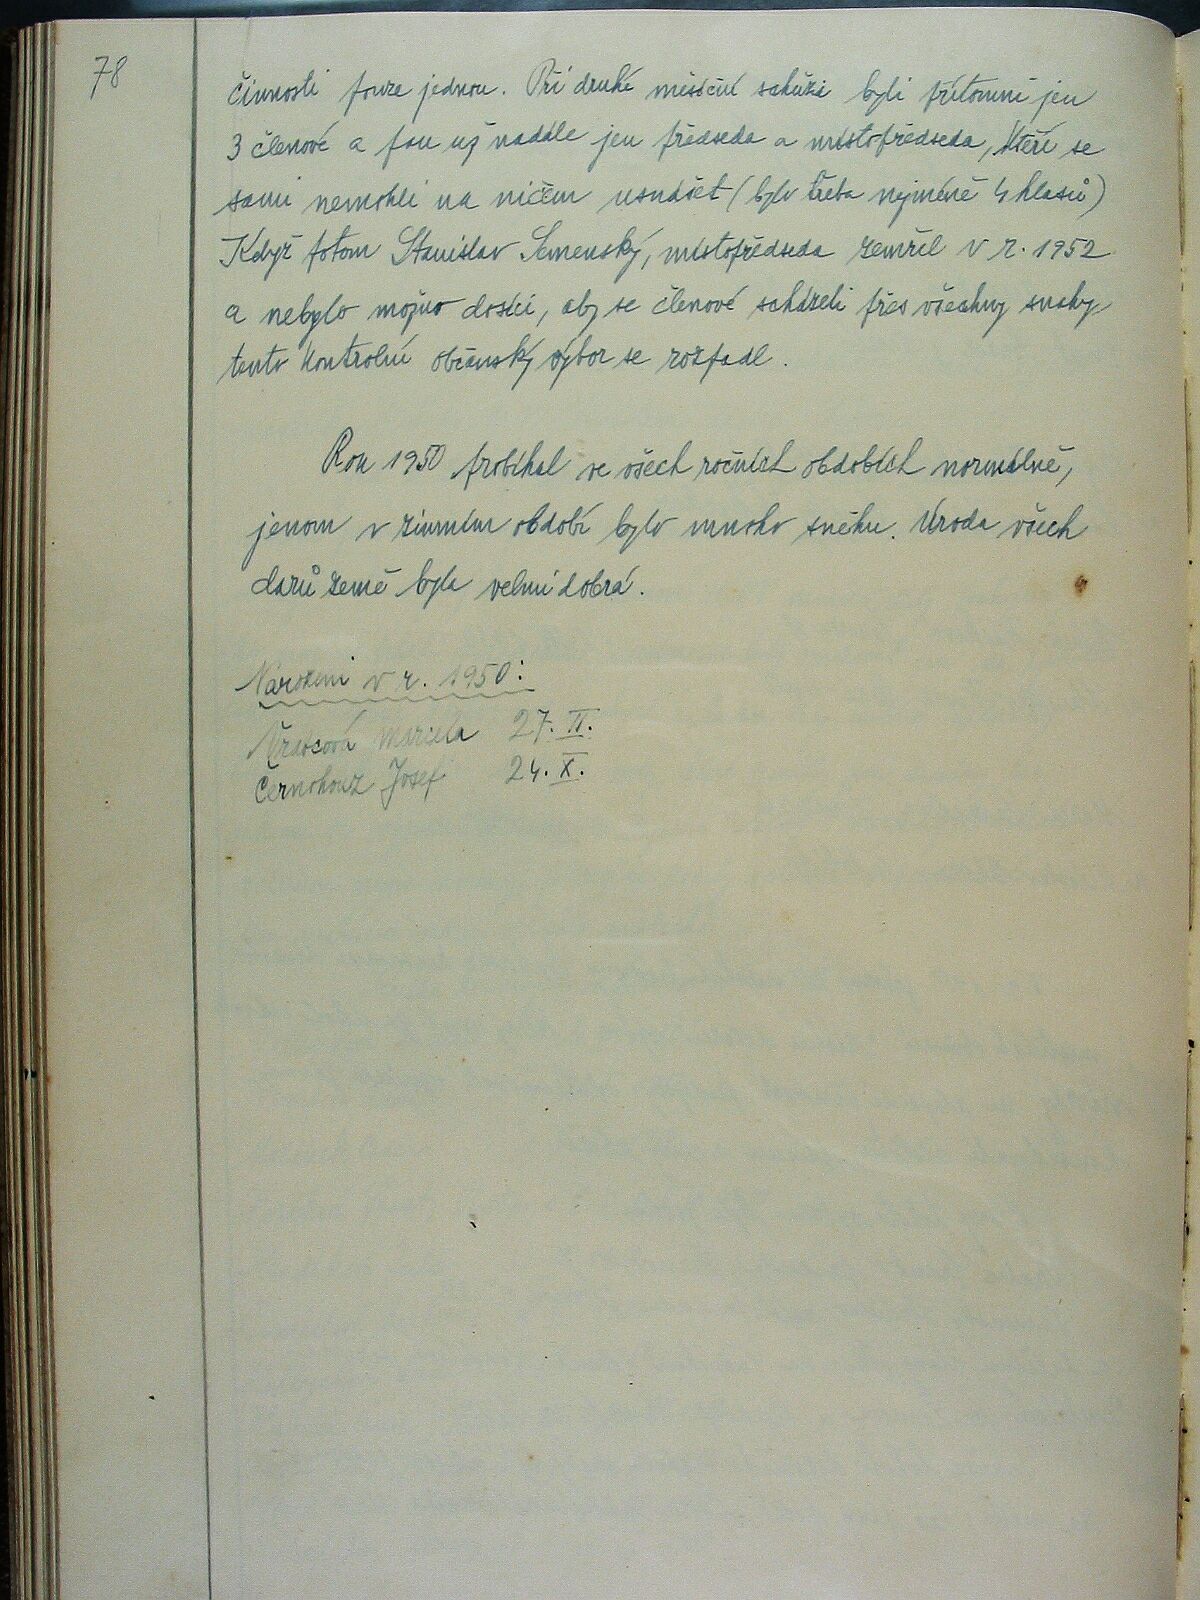 78
činnosti pouze jednou. Při druhé měsíční schůzi byli přítomni jen
3 členové a pak už nadále jen předseda a místopředseda, kteří se
sami nemohli na ničem usnášet (bylo třeba nejméně 4 hlasů)
Když potom Stanislav Semenský, místopředseda zemřel v r. 1952
a nebylo možno docíli, aby se členové scházeli přes všechny snahy,
tento kontrolní občanský výbor se rozpadl.
Rok 1950 probíhal ve všech ročních obdobích normálně,
jenom v zimním období bylo mnoho sněhu. Úroda všech
darů země byla velmi dobrá.
Narození v r. 1950:
Marcela 27. II.
Černohouz Josef 24. X.